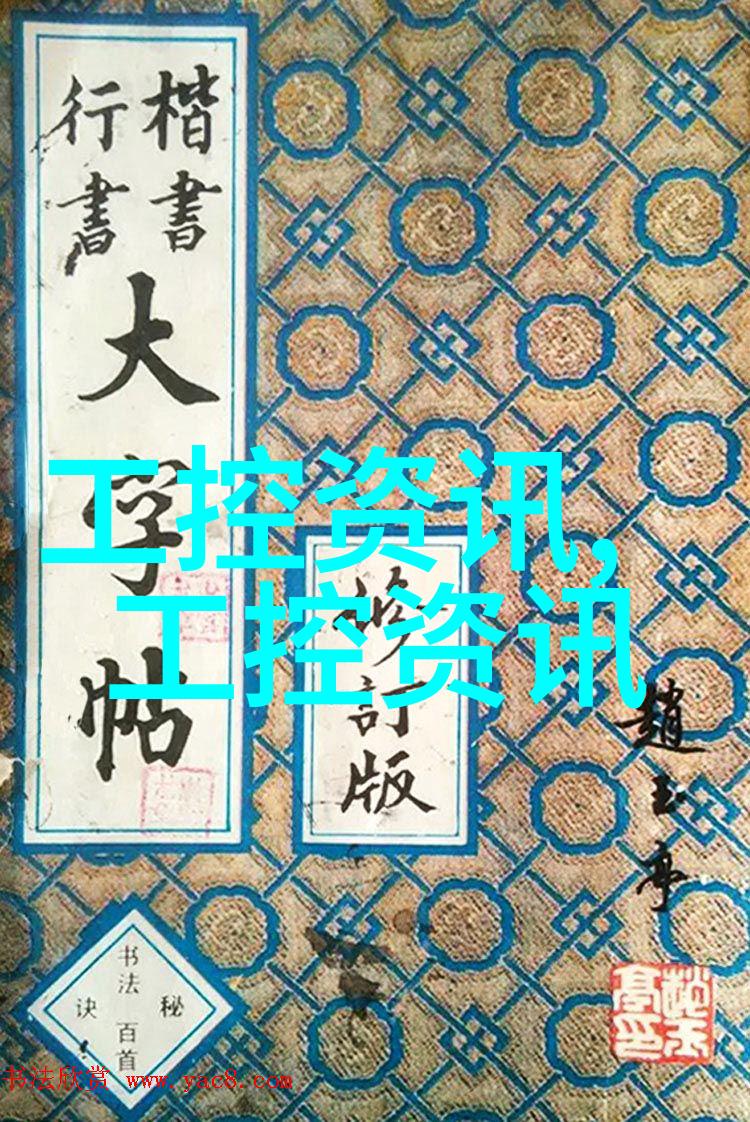 楷書
行書
大字帖
修訂版
工控资讯,
工控资讯
趙玉亭
书法百首
秘诀
书法欣赏 www.yac8.com